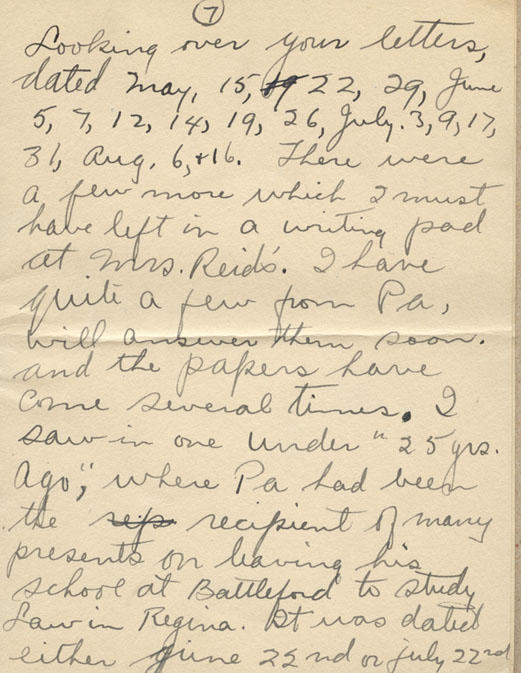 7
Looking over your letters,
dated May, 15, 19 22, 29, June
5, 7, 12, 14, 19, 26, July. 3, 9, 17,
31, Aug. 6, + 16. There were
a few more which I must
have left in a writing pad
at Mrs. Reid's. I have
quite a few from Pa,
will answer them soon.
and the papers have
come several times. I
saw in one under "25 yrs.
Ago", where Pa had been
the rep recipient of many
presents on leaving his
school at Battleford to study
Law in Regina. It was dated
either June 22nd or July 22nd